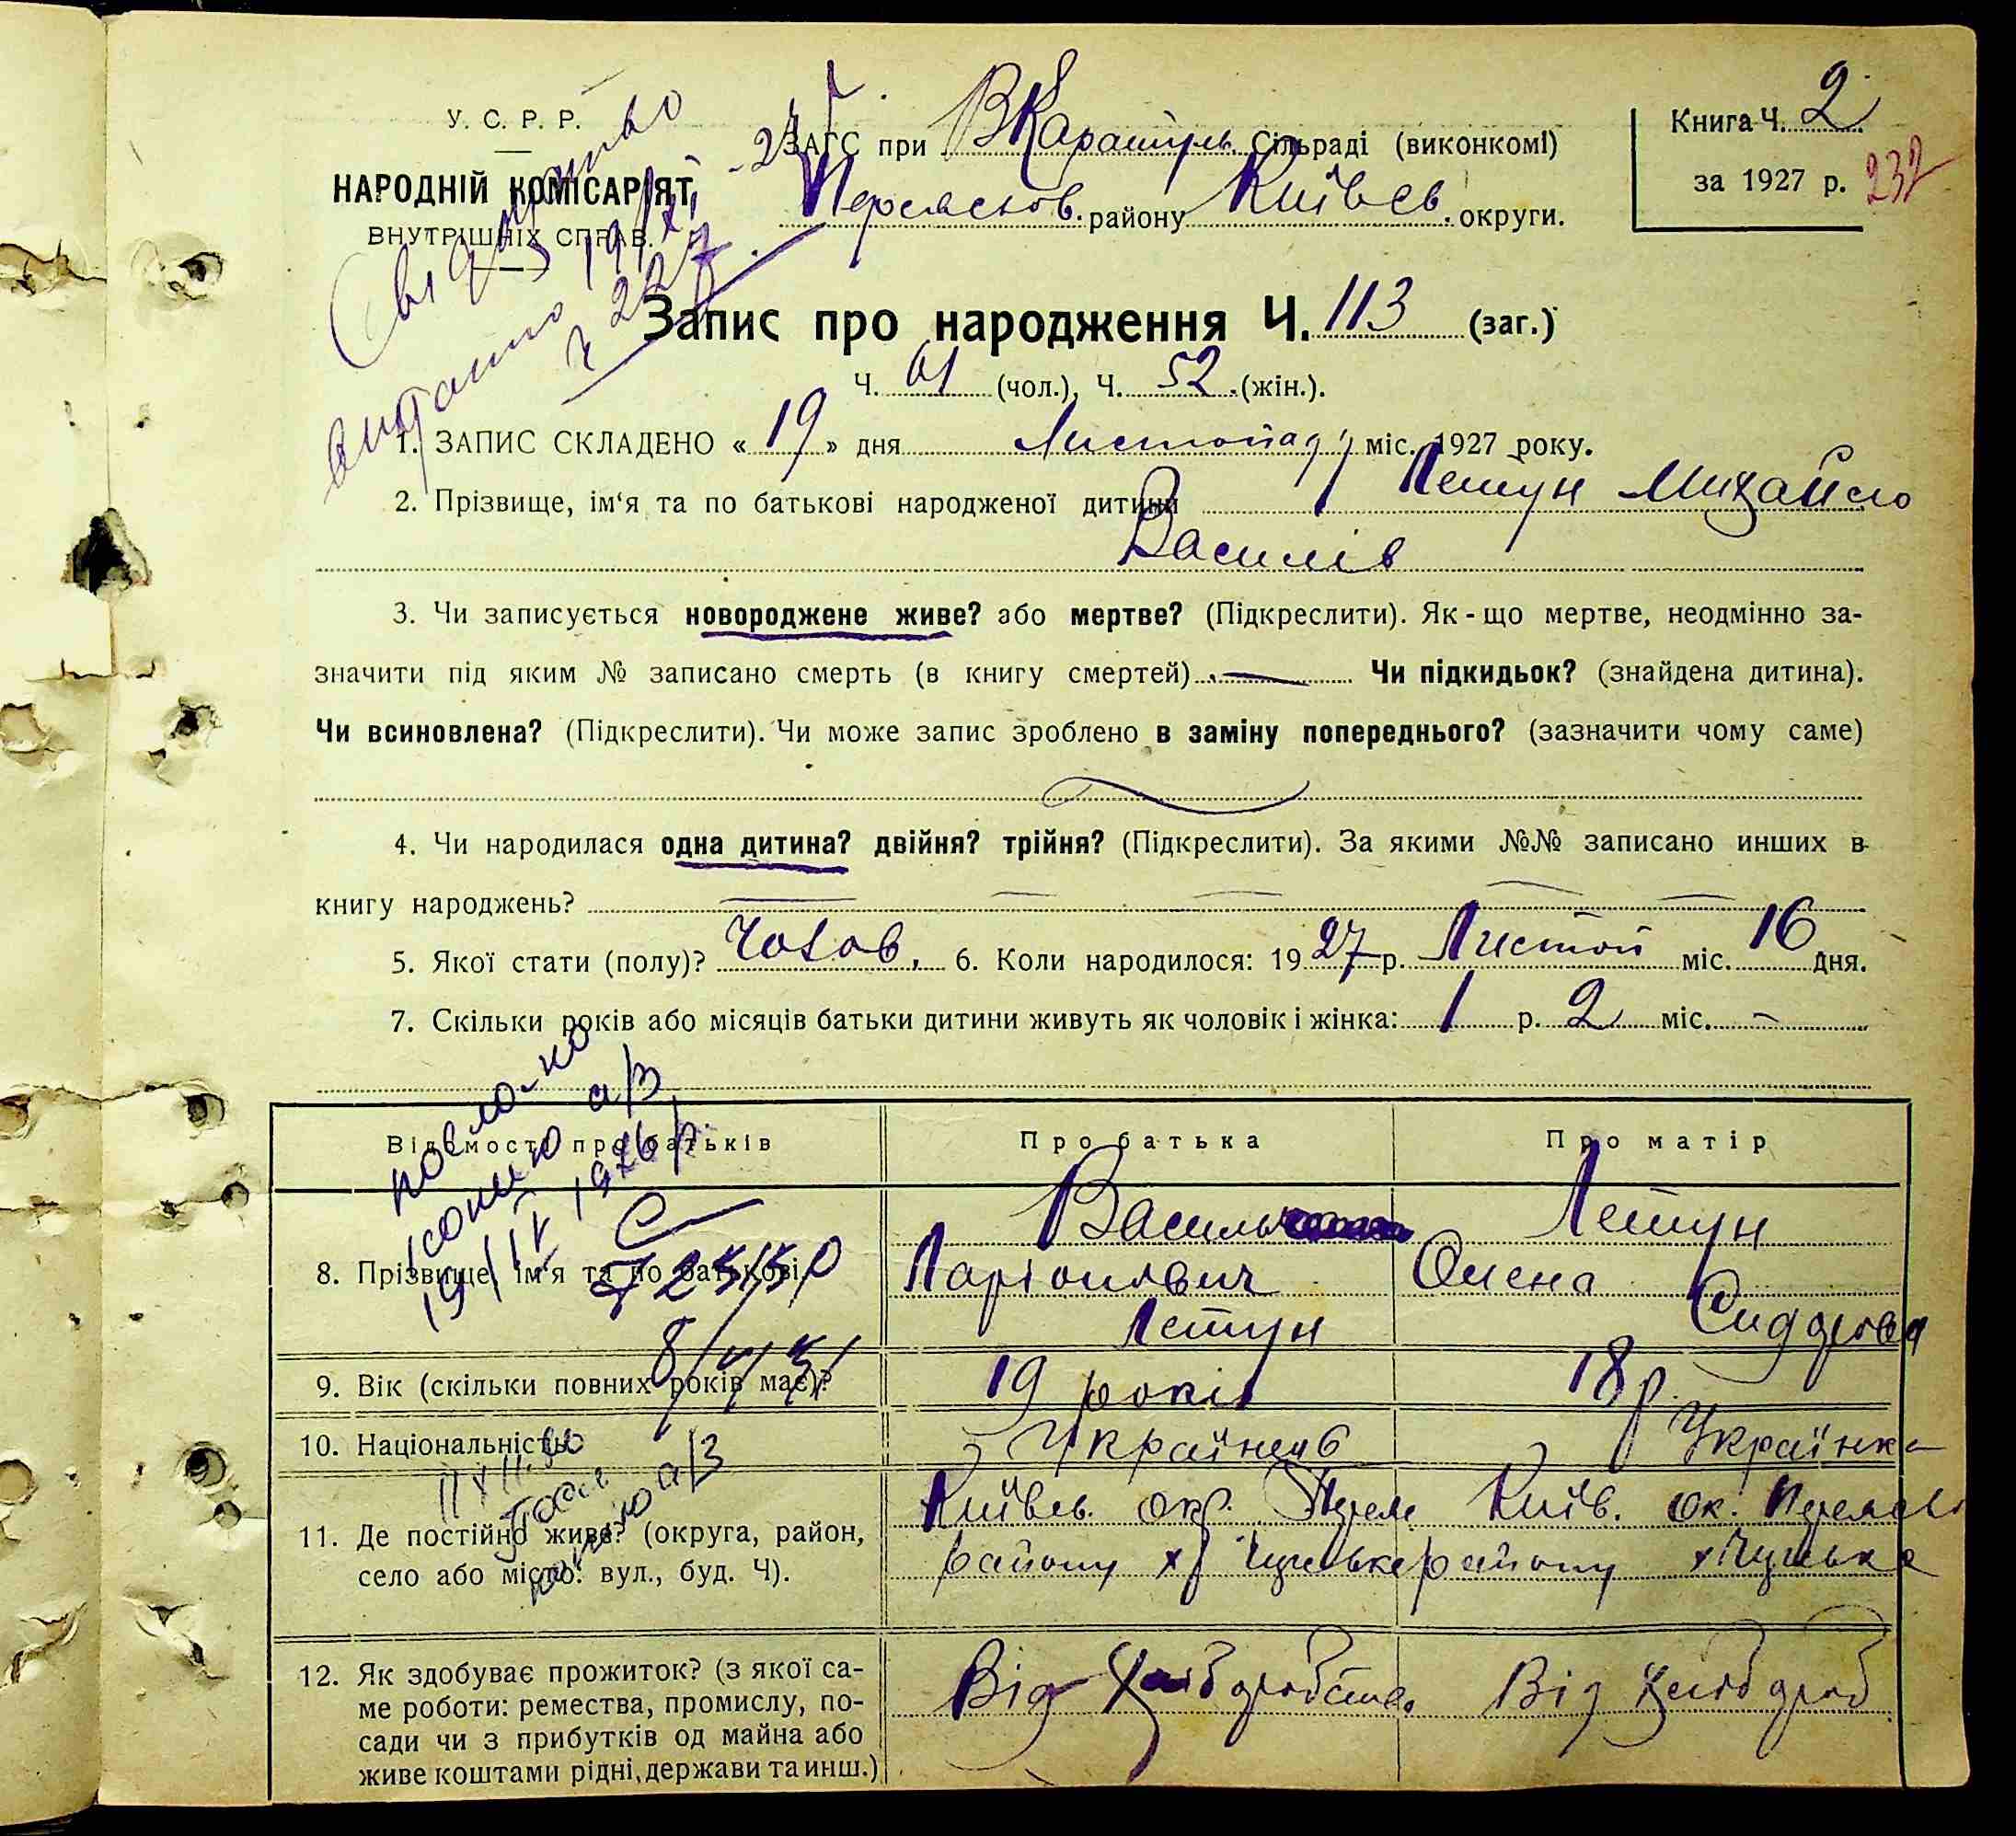 У. С. Р. Р.
НАРОДНІЙ КОМІСАРІЯТ
ВНУТРІШНІХ СПРАВ.
ЗАГС при ВКаратуль. Сільраді (виконкомі)
Переяслов. району Київсв. округи.
Книга Ч. 2
за 1927 р. 232
Запис про народження Ч. 113 (заг.)
Ч. 61 (чол.), Ч. 52 (жін.).
1. ЗАПИС СКЛАДЕНО « 19 » дня Листопаду міс. 1927 року.
2. Прізвище, ім‘я та по батькові народженої дитини Летун Михайло
Василів
3. Чи записується новороджене живе? або мертве? (Підкреслити). Як-що мертве, неодмінно за-
значити під яким № записано смерть (в книгу смертей) — Чи підкидьок? (знайдена дитина).
Чи всиновлена? (Підкреслити). Чи може запис зроблено в заміну попереднього? (зазначити чому саме)
4. Чи народилася одна дитина? двійня? трійня? (Підкреслити). За якими №№ записано инших в
книгу народжень?
5. Якої стати (полу)? Чолов. 6. Коли народилося: 1927 р. Листоп міс. 16 дня.
7. Скільки років або місяців батьки дитини живуть як чоловік і жінка: 1 р. 2 міс. —
Відомості про батьків Про батька Про матір
8. Прізвище, ім‘я та по батькові Василь Ларіонович Летун Летун Олена Сидорова
9. Вік (скільки повних років має)? 19 років 18 р.
10. Національність Українець Українка
11. Де постійно живе? (округа, район, Київсь. окр. Переяс Київ. ок. Переясл
село або місто: вул., буд. Ч). району х. району х.
12. Як здобуває прожиток? (з якої са- Від хліборобства Від хлібороб
ме роботи: ремества, промислу, по-
сади чи з прибутків од майна або
живе коштами рідні, держави та инш.)